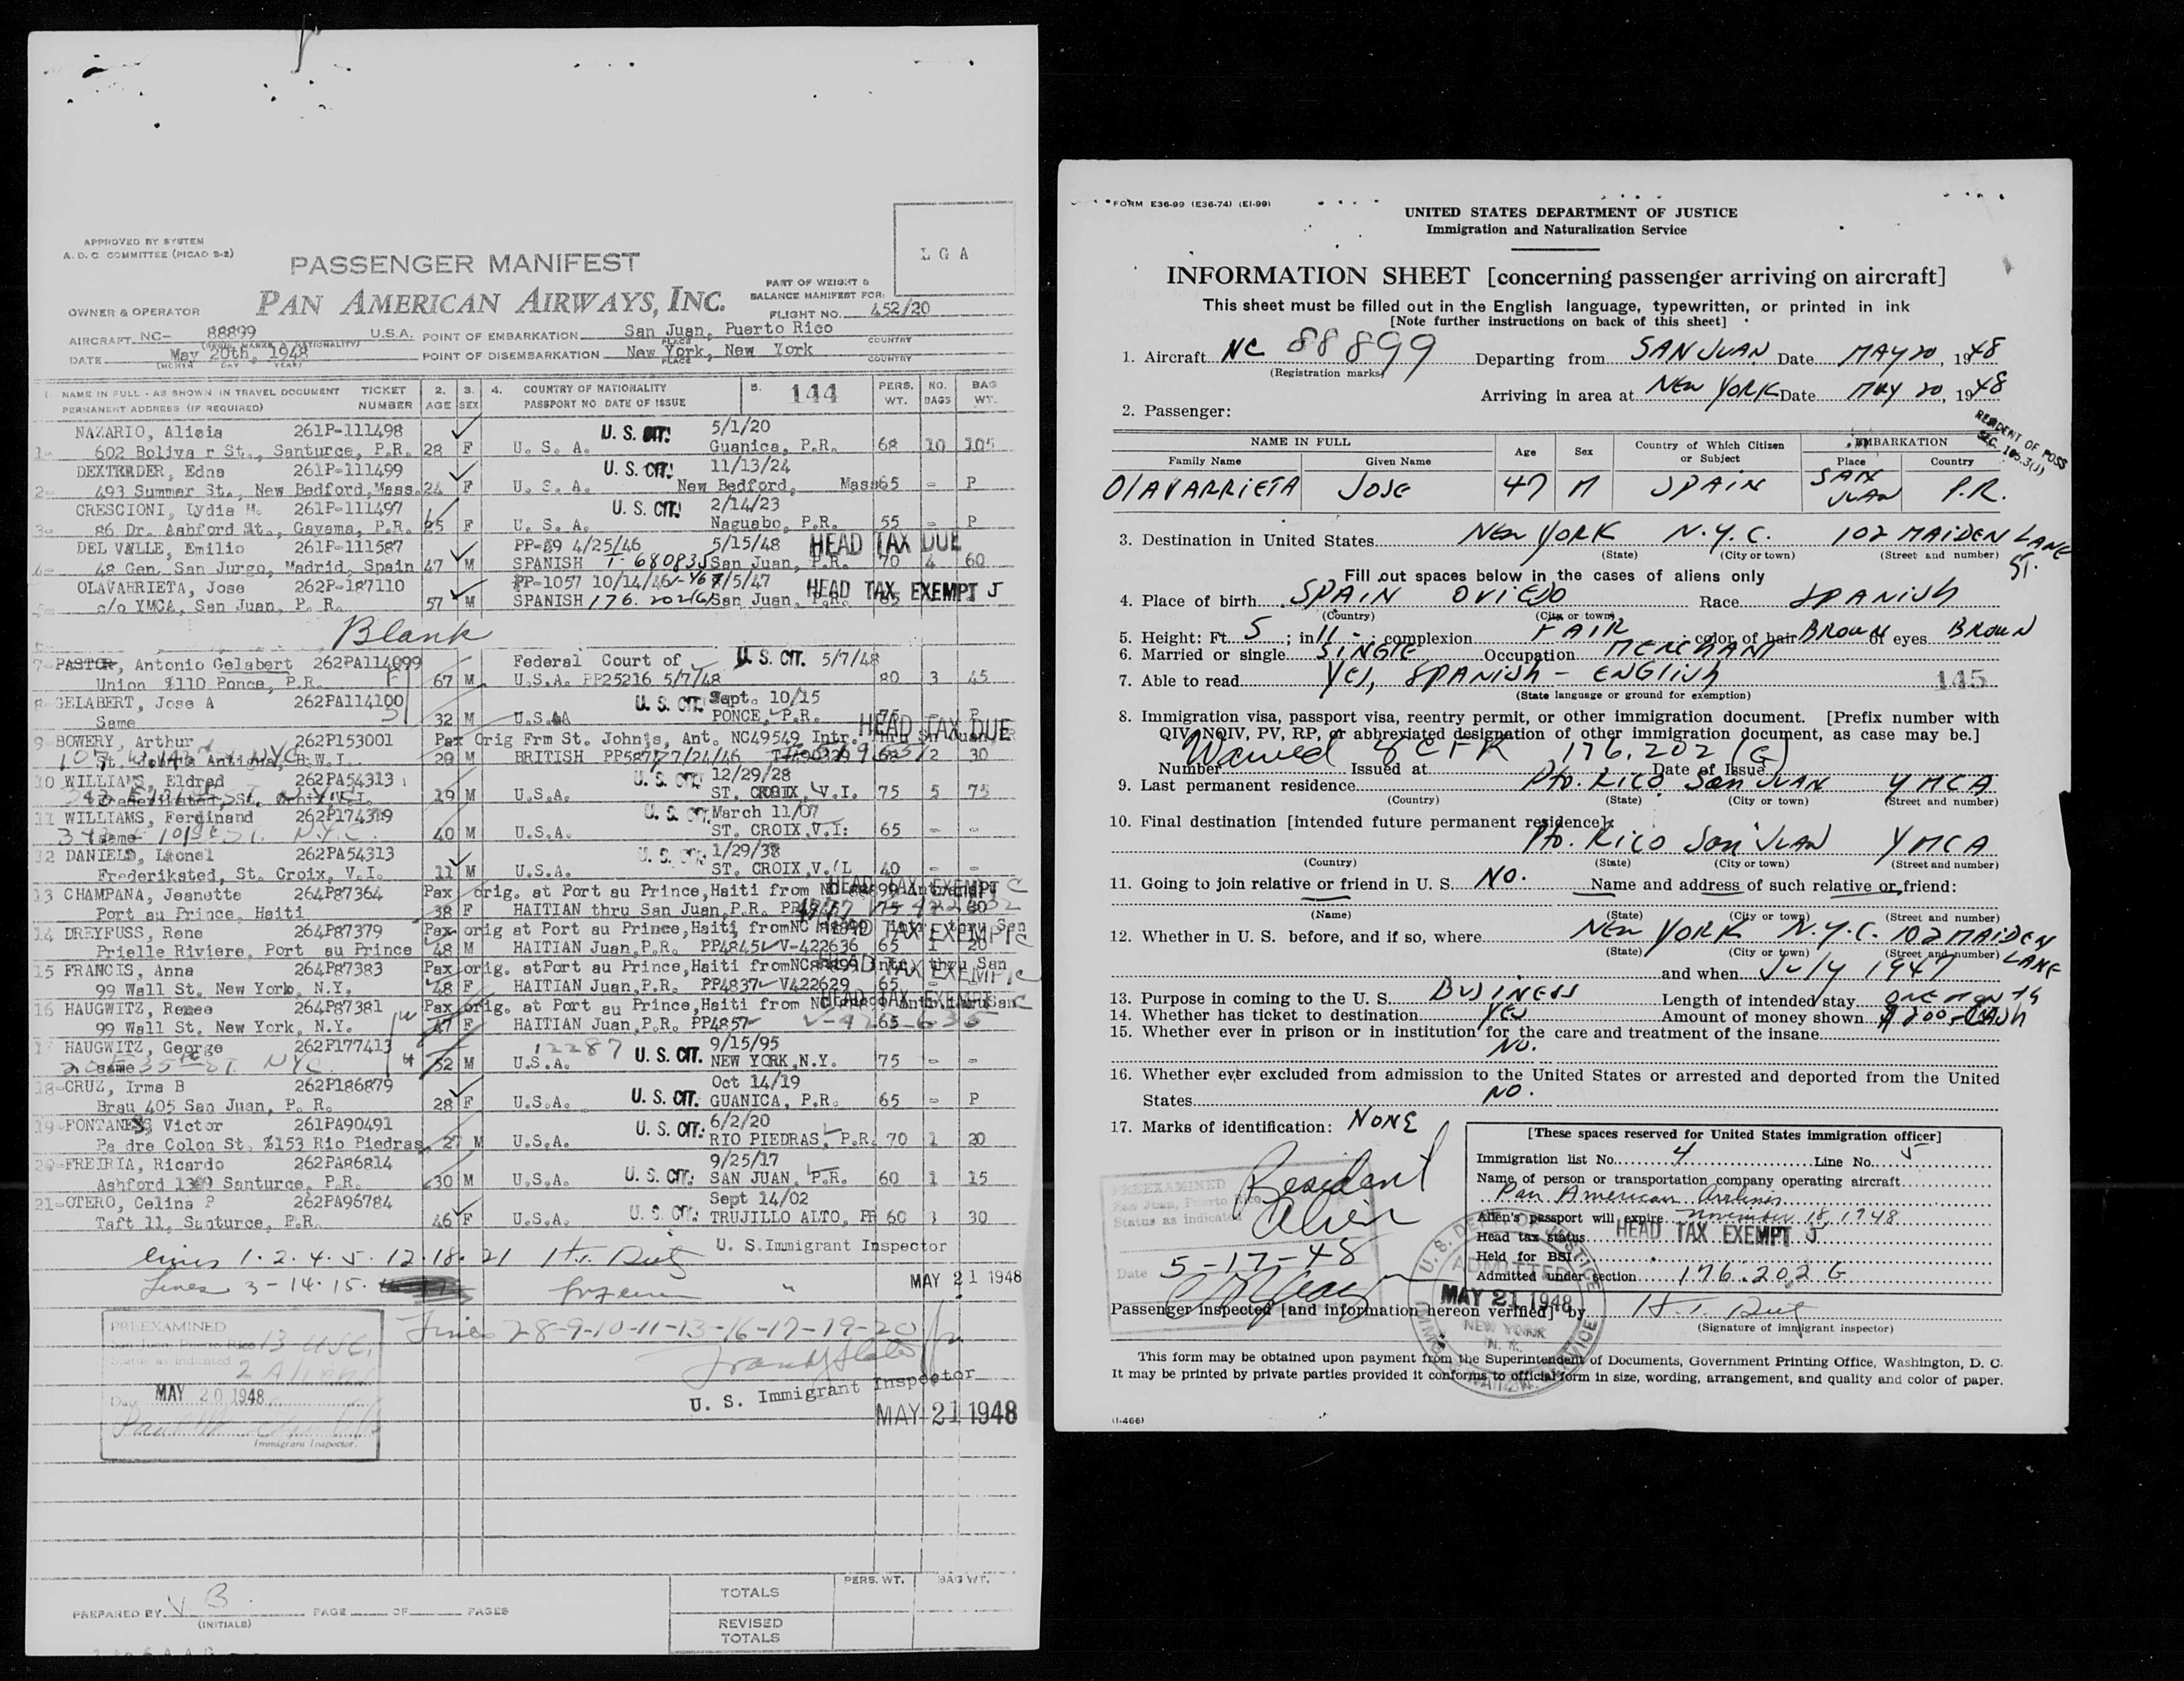 APPROVED BY SYSTEM
A. D. C. COMMITTEE (PICAO S-2)
PASSENGER MANIFEST
LGA
PAN AMERICAN AIRWAYS, INC.
PART OF WEIGHT &
BALANCE MANIFEST FOR:
OWNER & OPERATOR
FLIGHT NO. 452/20
AIRCRAFT NC- 88899 U.S.A. POINT OF EMBARKATION San Juan, Puerto Rico
PLACE COUNTRY
DATE May 20th, 1948 POINT OF DISEMBARKATION New York, New York
(MONTH DAY YEAR) PLACE COUNTRY
1. NAME IN FULL - AS SHOWN IN TRAVEL DOCUMENT TICKET 2. 3. 4. COUNTRY OF NATIONALITY 5. 144 PERS. NO. BAG
PERMANENT ADDRESS (IF REQUIRED) NUMBER AGE SEX PASSPORT NO DATE OF ISSUE WT. BAGS WT.
NAZARIO, Alicia 261P-111498 U. S. CIT. 5/1/20
1- 602 Bolivar St., Santurce, P.R. 28 F U. S. A. Guanica, P.R. 68 10 105
DEXTRADER, Edna 261P-111499 U. S. CIT. 11/13/24
2- 493 Summer St., New Bedford, Mass. 24 F U. S. A. New Bedford, Mass 65 - P
CRESCIONI, Lydia M. 261P-111497 U. S. CIT. 2/14/23
3- 86 Dr. Ashford St., Gayama, P.R. 25 F U. S. A. Naguabo, P.R. 55 - P
DEL VALLE, Emilio 261P-111587 PP-89 4/25/46 5/15/48 HEAD TAX DUE
4- 48 Gen. San Jurgo, Madrid, Spain 47 M SPANISH T-680835 San Juan, P.R. 70 4 60
OLAVARRIETA, Jose 262P-187110 PP-1057 10/14/46 8/5/47 HEAD TAX EXEMPT J
5- c/o YMCA, San Juan, P. R. 57 M SPANISH 176.202(G) San Juan, P.R. 85
Blank
7- PASTOR, Antonio Gelabert 262PA114099 Federal Court of U. S. CIT. 5/7/48
Union #110 Ponce, P.R. 67 M U.S.A. PP25216 5/7/48 80 3 45
8- GELABERT, Jose A 262PA114100 U. S. CIT. Sept. 10/15
Same 32 M U.S.A PONCE, P.R. 75 P
HEAD TAX DUE
9- BOWERY, Arthur 262P153001 Pax Orig Frm St. John's, Ant. NC49549 Intr. Thru San Juan PR
St. John's Antigua, B.W.I. 29 M BRITISH PP5877 7/24/46 68 2 30
10 WILLIAMS, Eldred 262PA54313 U. S. CIT. 12/29/28
Frederiksted, St. Croix V.I. 19 M U.S.A. ST. CROIX, V.I. 75 5 75
11 WILLIAMS, Ferdinand 262P174319 U. S. CIT. March 11/07
same N.Y.C. 40 M U.S.A. ST. CROIX, V.I. 65 - -
12 DANIELS, Leonel 262PA54313 U. S. CIT. 1/29/38
Frederiksted, St. Croix, V.I. 11 M U.S.A. ST. CROIX, V.(L 40 - -
13 CHAMPANA, Jeanette 264P87364 Pax orig. at Port au Prince, Haiti from NC HEAD TAX EXEMPT C
Port au Prince, Haiti 38 F HAITIAN thru San Juan, P.R.
14 DREYFUSS, Rene 264P87379 Pax orig at Port au Prince, Haiti, from NC HEAD TAX EXEMPT C
Prielle Riviere, Port au Prince 48 M HAITIAN Juan, P.R. PP4845 V-422636 65 1 20
15 FRANCIS, Anna 264P87383 Pax orig. at Port au Prince, Haiti from NC HEAD TAX EXEMPT C
99 Wall St. New York, N.Y. 48 F HAITIAN Juan, P.R. PP4837 V422629 65 -
16 HAUGWITZ, Renee 264P87381 Pax orig. at Port au Prince, Haiti from NC HEAD TAX EXEMPT C
99 Wall St. New York, N.Y. 47 F HAITIAN Juan, P.R. PP4857 65
17 HAUGWITZ, George 262P177413 12287 U. S. CIT. 9/15/95
same NYC. 52 M U.S.A. NEW YORK, N.Y. 75 - -
18- CRUZ, Irma B 262P186879 Oct 14/19
Brau 405 San Juan, P. R. 28 F U.S.A. U. S. CIT. GUANICA, P.R. 65 - P
19- FONTANES, Victor 261PA90491 U. S. CIT. 6/2/20
Padre Colon St. #153 Rio Piedras, 27 M U.S.A. RIO PIEDRAS, P.R. 70 1 20
20- FREIRIA, Ricardo 262PA86814 9/25/17
Ashford 1369 Santurce, P.R. 30 M U.S.A. U. S. CIT. SAN JUAN, P.R. 60 1 15
21- OTERO, Celina P 262PA96784 Sept 14/02
Taft 11, Santurce, P.R. 46 F U.S.A. U. S. CIT. TRUJILLO ALTO, PR 60 1 30
lines 1.2.4.5.12.18.21 U. S. Immigrant Inspector
Lines 3-14-15. " MAY 21 1948
PREEXAMINED
San Juan, Puerto Rico 13 USC.
Lines 7-8-9-10-11-13-16-17-19-20
Status as indicated 2 Aliens
Date MAY 20 1948
U. S. Immigrant Inspector
MAY 21 1948
Immigrant Inspector.
TOTALS PERS. WT. BAG WT.
PREPARED BY V. B. PAGE OF PAGES
(INITIALS)
REVISED
TOTALS
FORM E36-99 (E36-74) (EI-99)
UNITED STATES DEPARTMENT OF JUSTICE
Immigration and Naturalization Service
INFORMATION SHEET [concerning passenger arriving on aircraft]
This sheet must be filled out in the English language, typewritten, or printed in ink
[Note further instructions on back of this sheet]
1. Aircraft NC 88899 Departing from SAN JUAN Date MAY 20, 1948
(Registration marks)
Arriving in area at NEW YORK Date MAY 20, 1948
2. Passenger:
RESIDENT OF POSS
SEC. 105.3(J)
NAME IN FULL Age Sex Country of Which Citizen or Subject EMBARKATION
Family Name Given Name Place Country
OLAVARRIETA JOSE 47 M SPAIN SAN JUAN P.R.
3. Destination in United States NEW YORK N.Y.C. 102 MAIDEN LANE ST.
(State) (City or town) (Street and number)
Fill out spaces below in the cases of aliens only
4. Place of birth SPAIN OVIEDO Race SPANISH
(Country) (City or town)
5. Height: Ft. 5; in 11; complexion FAIR; color of hair BROWN of eyes BROWN
6. Married or single SINGLE Occupation MERCHANT
7. Able to read YES, SPANISH - ENGLISH 145
(State language or ground for exemption)
8. Immigration visa, passport visa, reentry permit, or other immigration document. [Prefix number with
QIV, NQIV, PV, RP, or abbreviated designation of other immigration document, as case may be.]
Number Waived 8 CFR Issued at 176.202 (G) Date of Issue
9. Last permanent residence Pto. Rico San JUAN YMCA
(Country) (State) (City or town) (Street and number)
10. Final destination [intended future permanent residence]:
Pto. Rico San JUAN YMCA
(Country) (State) (City or town) (Street and number)
11. Going to join relative or friend in U. S. NO. Name and address of such relative or friend:
(Name) (State) (City or town) (Street and number)
12. Whether in U. S. before, and if so, where NEW YORK N.Y.C. 102 MAIDEN LANE
(State) (City or town) (Street and number)
and when July 1947
13. Purpose in coming to the U. S. BUSINESS Length of intended stay ONE MONTH
14. Whether has ticket to destination YES Amount of money shown $200 - CASH
15. Whether ever in prison or in institution for the care and treatment of the insane
NO.
16. Whether ever excluded from admission to the United States or arrested and deported from the United
States NO.
17. Marks of identification: NONE
[These spaces reserved for United States immigration officer]
Immigration list No. 4 Line No. 5
Name of person or transportation company operating aircraft
Pan American Airlines
Alien's passport will expire November 18, 1948
Head tax status HEAD TAX EXEMPT J
Held for BSI
Admitted under section 176.202 G
PREEXAMINED
San Juan, Puerto Rico
Status as indicated
Resident Alien
Date 5-17-48
U. S. DEPT. OF JUSTICE
ADMITTED
MAY 21 1948
NEW YORK
N. Y.
Passenger inspected [and information hereon verified] by
(Signature of immigrant inspector)
This form may be obtained upon payment from the Superintendent of Documents, Government Printing Office, Washington, D. C.
It may be printed by private parties provided it conforms to official form in size, wording, arrangement, and quality and color of paper.
(I-466)